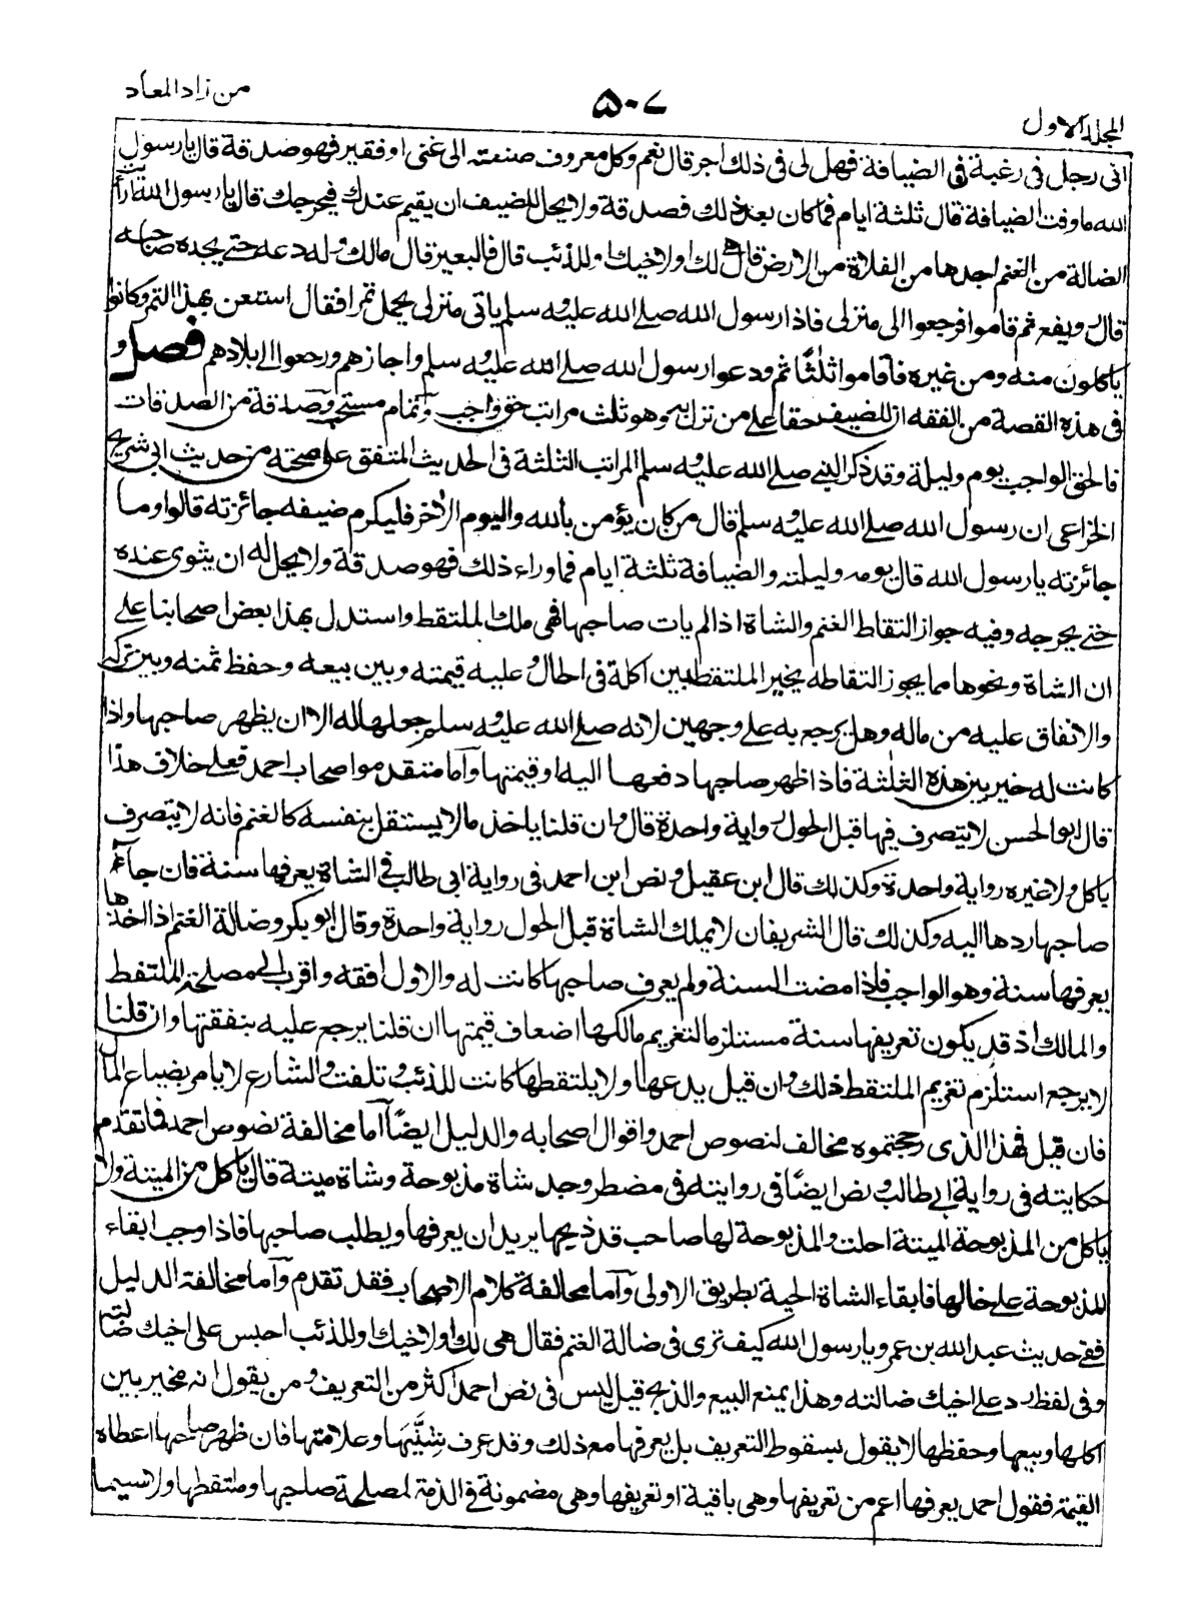 المجلد الاول
۵۰۷
من زاد المعاد
انى رجل فى رغبة فى الضيافة فهل لى فى ذلك اجر قال نعم وكل معروف صنعته الى غنى او فقير فهو صدقة قال يا رسول
الله ما وقت الضيافة قال ثلثة ايام فما كان بعد ذلك فصدقة ولا يحل للضيف ان يقيم عندك فيحرجك قال يا رسول الله ارأيت
الضالة من الغنم اجدها من الفلاة من الارض قال هى لك او لاخيك او للذئب قال فالبعير قال مالك وله دعه حتى يجده صاحبه
قال رويفع ثم قاموا فرجعوا الى منزلى فاذا رسول الله صلى الله عليه وسلم ياتى منزلى يحمل تمرا فقال استعن بهذا التمر وكانوا
ياكلون منه ومن غيره فاقاموا ثلثًا ثم ودعوا رسول الله صلى الله عليه وسلم واجازهم ورجعوا الى بلادهم فصل و
فى هذه القصة من الفقه ان للضيف حقا على من نزل به وهو ثلث مراتب حق واجب وتمام مستحب وصدقة من الصدقات
فالحق الواجب يوم وليلة وقد ذكر النبى صلى الله عليه وسلم المراتب الثلثة فى الحديث المتفق على صحته من حديث ابى شريح
الخزاعى ان رسول الله صلى الله عليه وسلم قال من كان يؤمن بالله واليوم الآخر فليكرم ضيفه جائزته قالوا وما
جائزته يا رسول الله قال يومه وليلته والضيافة ثلثة ايام فما وراء ذلك فهو صدقة ولا يحل له ان يثوى عنده
حتى يحرجه وفيه جواز التقاط الغنم والشاة اذا لم يات صاحبها فهى ملك الملتقط واستدل بهذا بعض اصحابنا على
ان الشاة ونحوها مما يجوز التقاطه يخير الملتقط بين اكلة فى الحال وعليه قيمته وبين بيعه وحفظ ثمنه وبين تركه
والانفاق عليه من ماله وهل يرجع به على وجهين لانه صلى الله عليه وسلم جعلها له الا ان يظهر صاحبها واذا
كانت له خير بين هذه الثلثة فاذا ظهر صاحبها دفعها اليه او قيمتها واما متقدموا اصحاب احمد فعلى خلاف هذا
قال ابو الحسن لا يتصرف فيها قبل الحول رواية واحدة قال وان قلنا ياخذ ما لا يستقل بنفسه كالغنم فانه لا يتصرف
ياكل ولا غيره رواية واحدة وكذلك قال ابن عقيل ونص ابن احمد فى رواية ابى طالب فى الشاة يعرفها سنة فان جاء
صاحبها ردها اليه وكذلك قال الشريفان لا يملك الشاة قبل الحول رواية واحدة وقال ابو بكر وضالة الغنم اذا اخذها
يعرفها سنة وهو الواجب فاذا مضت السنة ولم يعرف صاحبها كانت له والاول افقه واقرب الى مصلحة الملتقط
والمالك اذ قد يكون تعريفها سنة مستلزما لتغريم مالكها اضعاف قيمتها ان قلنا يرجع عليه بنفقتها وان قلنا
لا يرجع استلزم تغريم الملتقط ذلك وان قيل يدعها ولا يلتقطها كانت للذئب وتلفت والشارع لا يامر بضياع المال
فان قيل فهذا الذى رجحتموه مخالف لنصوص احمد واقوال اصحابه والدليل ايضًا اما مخالفة نصوص احمد فما تقدم
حكايته فى رواية ابى طالب ونص ايضًا فى روايته فى مضطر وجد شاة مذبوحة وشاة ميتة قال ياكل من الميتة ولا
ياكل من المذبوحة الميتة احلت والمذبوحة لها صاحب قد ذبحها يريد ان يعرفها ويطلب صاحبها فاذا اوجب ابقاء
المذبوحة على حالها فابقاء الشاة الحية بطريق الاولى واما مخالفة كلام الاصحاب فقد تقدم واما مخالفة الدليل
ففى حديث عبد الله بن عمرو يا رسول الله كيف ترى فى ضالة الغنم فقال هى لك او لاخيك او للذئب احبس على اخيك ضالته
وفى لفظ رد على اخيك ضالته وهذا يمنع البيع والذبح قيل ليس فى نص احمد اكثر من التعريف ومن يقول انه مخير بين
اكلها وبيعها وحفظها لا يقول بسقوط التعريف بل يعرفها مع ذلك وقد عرف شِيَتَهَا وعلامتها فان ظهر صاحبها اعطاه
القيمة فقول احمد يعرفها اعم من تعريفها وهى باقية او تعريفها وهى مضمونة فى الذمة لمصلحة صاحبها وملتقطها ولا سيما